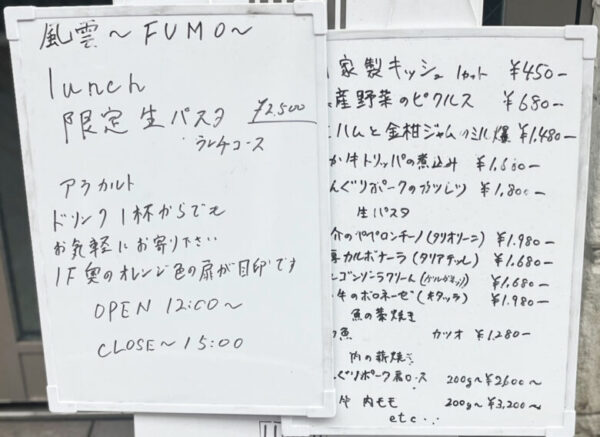 風雲～FUMO～
lunch
限定生パスタ ¥2,500
ランチコース
アラカルト
ドリンク1杯からでも
お気軽にお寄り下さい
1F奥のオレンジ色の扉が目印です
OPEN 12:00～
CLOSE～15:00
家製キッシュ 1カット ¥450-
産野菜のピクルス ¥680-
ハムと金柑ジャムのミル爆 ¥1,480-
牛トリッパの煮込み ¥1,680-
んぐりポークのカツレツ ¥1,800-
生パスタ
介のペペロンチーノ(タリオリーニ) ¥1,980-
カルボナーラ(タリアテッレ) ¥1,680-
ンゴンゾーラクリーム ¥1,680-
牛のボロネーゼ(キタッラ) ¥1,980-
魚の藁焼き
魚 カツオ ¥1,280-
肉の薪焼き
ぐりポーク肩ロース 200g～¥2,600～
牛 内モモ 200g～¥3,200～
etc...